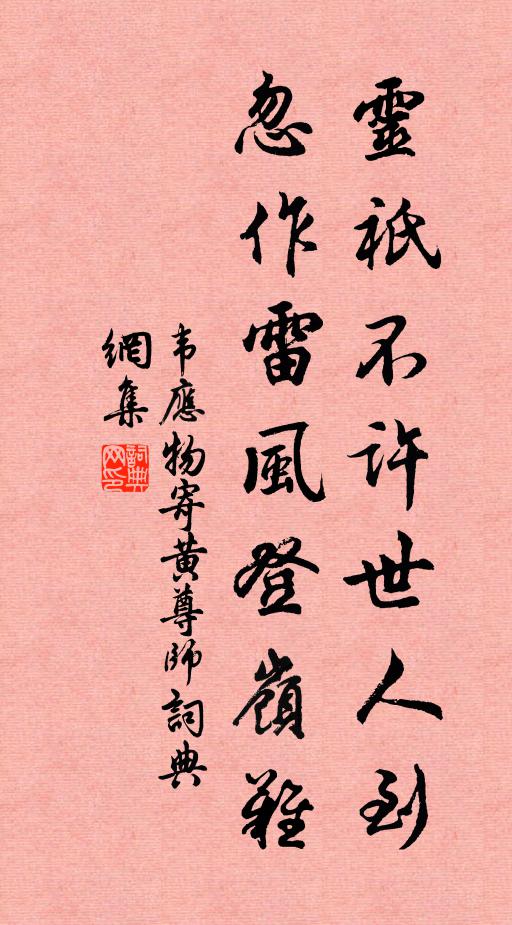 靈祇不許世人到
忽作雷風登嶺難
韦應物寄黄尊師詞典
網集
詞典
网印